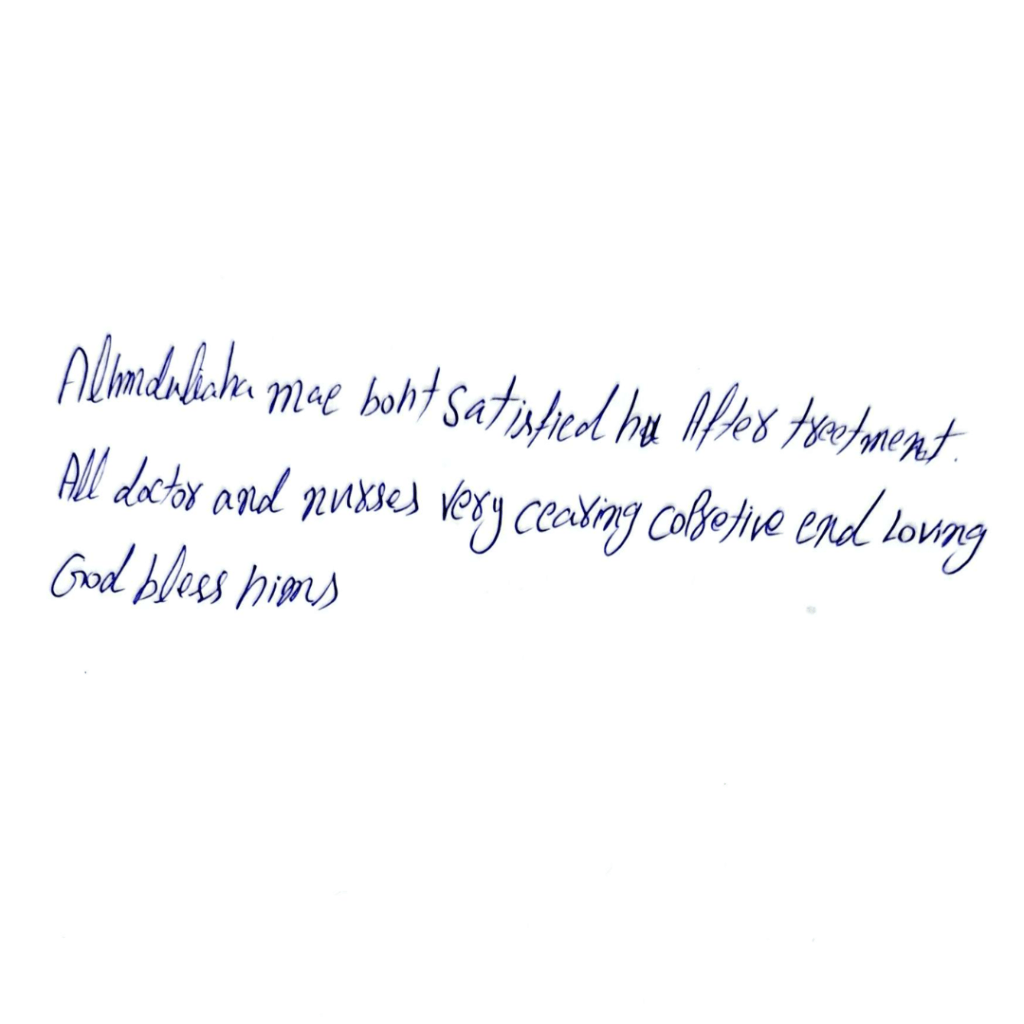 Alhmduliaha mae boht satisfied hu After treetment.
All doctor and nurses very cearing colretive end Loving
God bless hims